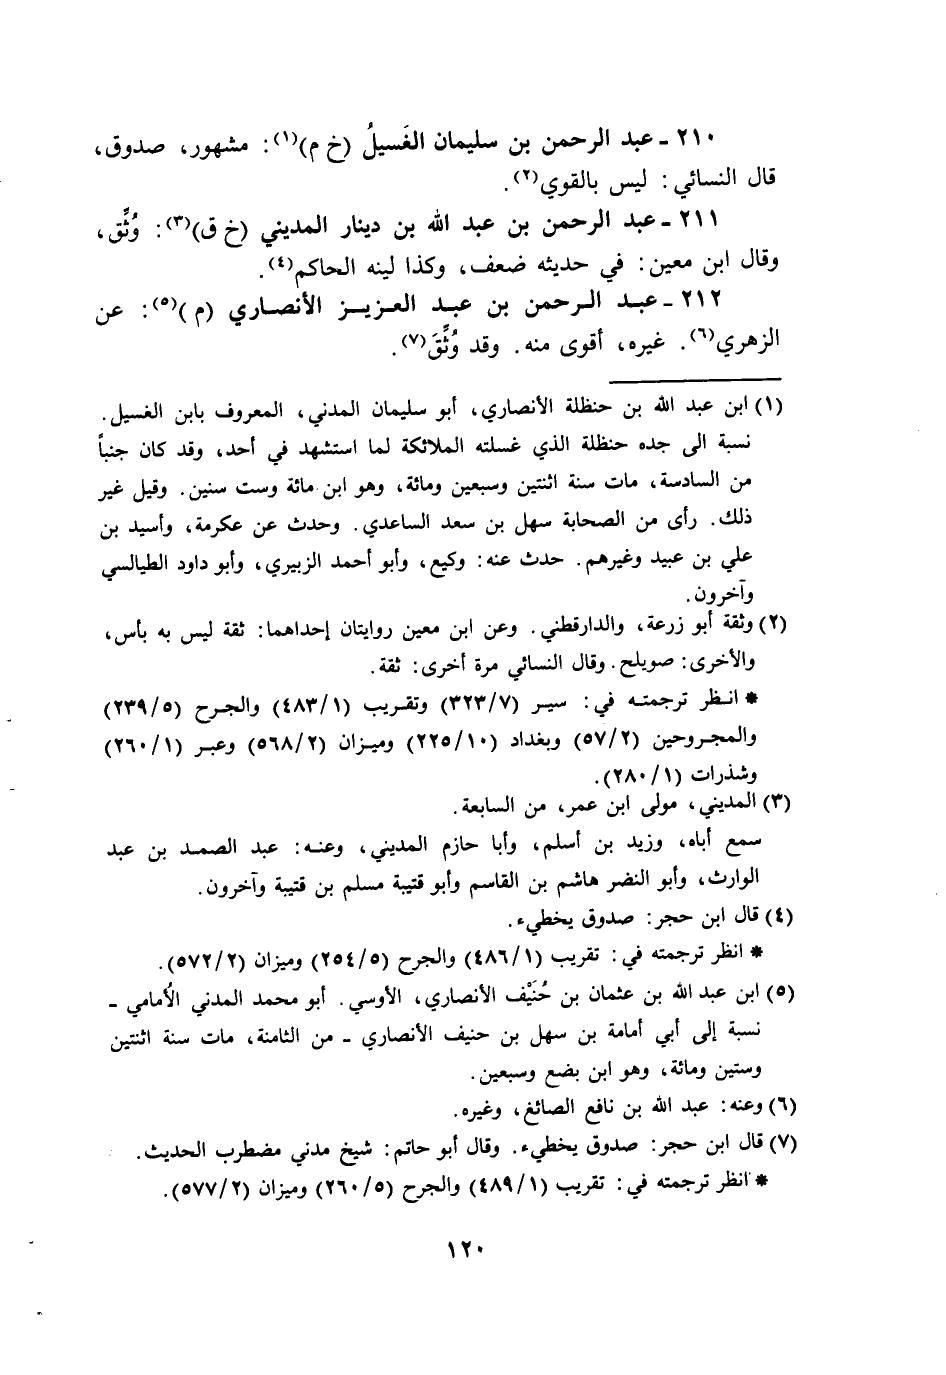 ٢١٠ ـ عبد الرحمن بن سليمان الغَسيلُ (خ م)(١): مشهور، صدوق،
قال النسائي: ليس بالقوي(٢).
٢١١ ـ عبد الرحمن بن عبد الله بن دينار المديني (خ ق)(٣): وُثِّق،
وقال ابن معين: في حديثه ضعف، وكذا لينه الحاكم(٤).
٢١٢ ـ عبد الرحمن بن عبد العزيز الأنصاري (م)(٥): عن
الزهري(٦). غيره، أقوى منه. وقد وُثِّقَ(٧).
(١) ابن عبد الله بن حنظلة الأنصاري، أبو سليمان المدني، المعروف بابن الغسيل.
نسبة الى جده حنظلة الذي غسلته الملائكة لما استشهد في أحد، وقد كان جنباً
من السادسة، مات سنة اثنتين وسبعين ومائة، وهو ابن مائة وست سنين. وقيل غير
ذلك. رأى من الصحابة سهل بن سعد الساعدي. وحدث عن عكرمة، وأسيد بن
علي بن عبيد وغيرهم. حدث عنه: وكيع، وأبو أحمد الزبيري، وأبو داود الطيالسي
وآخرون.
(٢) وثقة أبو زرعة، والدارقطني. وعن ابن معين روايتان إحداهما: ثقة ليس به بأس،
والأخرى: صويلح. وقال النسائي مرة أخرى: ثقة.
* انظر ترجمته في: سير (٣٢٣/٧) وتقريب (٤٨٣/١) والجرح (٢٣٩/٥)
والمجروحين (٥٧/٢) وبغداد (٢٢٥/١٠) وميزان (٥٦٨/٢) وعبر (٢٦٠/١)
وشذرات (٢٨٠/١).
(٣) المديني، مولى ابن عمر، من السابعة.
سمع أباه، وزيد بن أسلم، وأبا حازم المديني، وعنه: عبد الصمد بن عبد
الوارث، وأبو النضر هاشم بن القاسم وأبو قتيبة مسلم بن قتيبة وآخرون.
(٤) قال ابن حجر: صدوق يخطيء.
* انظر ترجمته في: تقريب (٤٨٦/١) والجرح (٢٥٤/٥) وميزان (٥٧٢/٢).
(٥) ابن عبد الله بن عثمان بن حُنَيْف الأنصاري، الأوسي. أبو محمد المدني الأُمامي ـ
نسبة إلى أبي أمامة بن سهل بن حنيف الأنصاري ـ من الثامنة، مات سنة اثنتين
وستين ومائة، وهو ابن بضع وسبعين.
(٦) وعنه: عبد الله بن نافع الصائغ، وغيره.
(٧) قال ابن حجر: صدوق يخطيء. وقال أبو حاتم: شيخ مدني مضطرب الحديث.
* انظر ترجمته في: تقريب (٤٨٩/١) والجرح (٢٦٠/٥) وميزان (٥٧٧/٢).
١٢٠